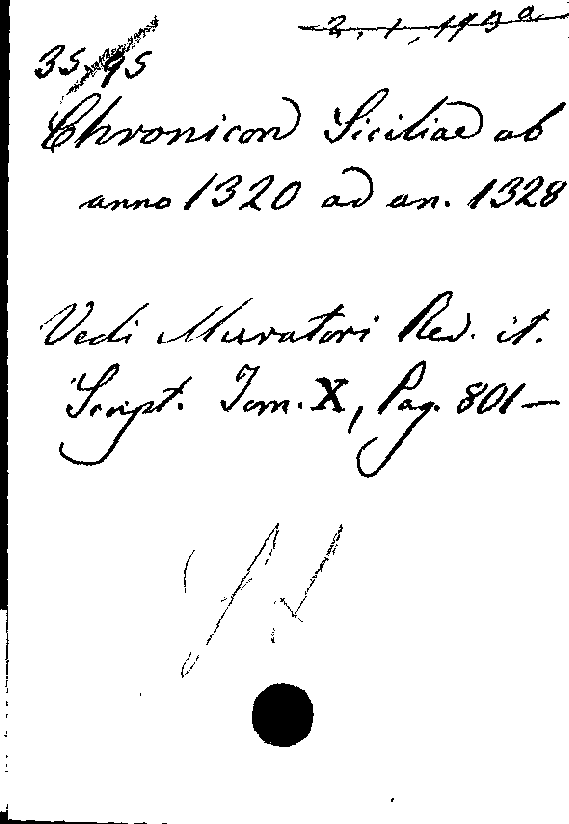 3595
Chronicon Siciliae ab
anno 1320 ad an. 1328
Vedi Muratori Rer. it.
Script. Tom. X, Pag. 801—